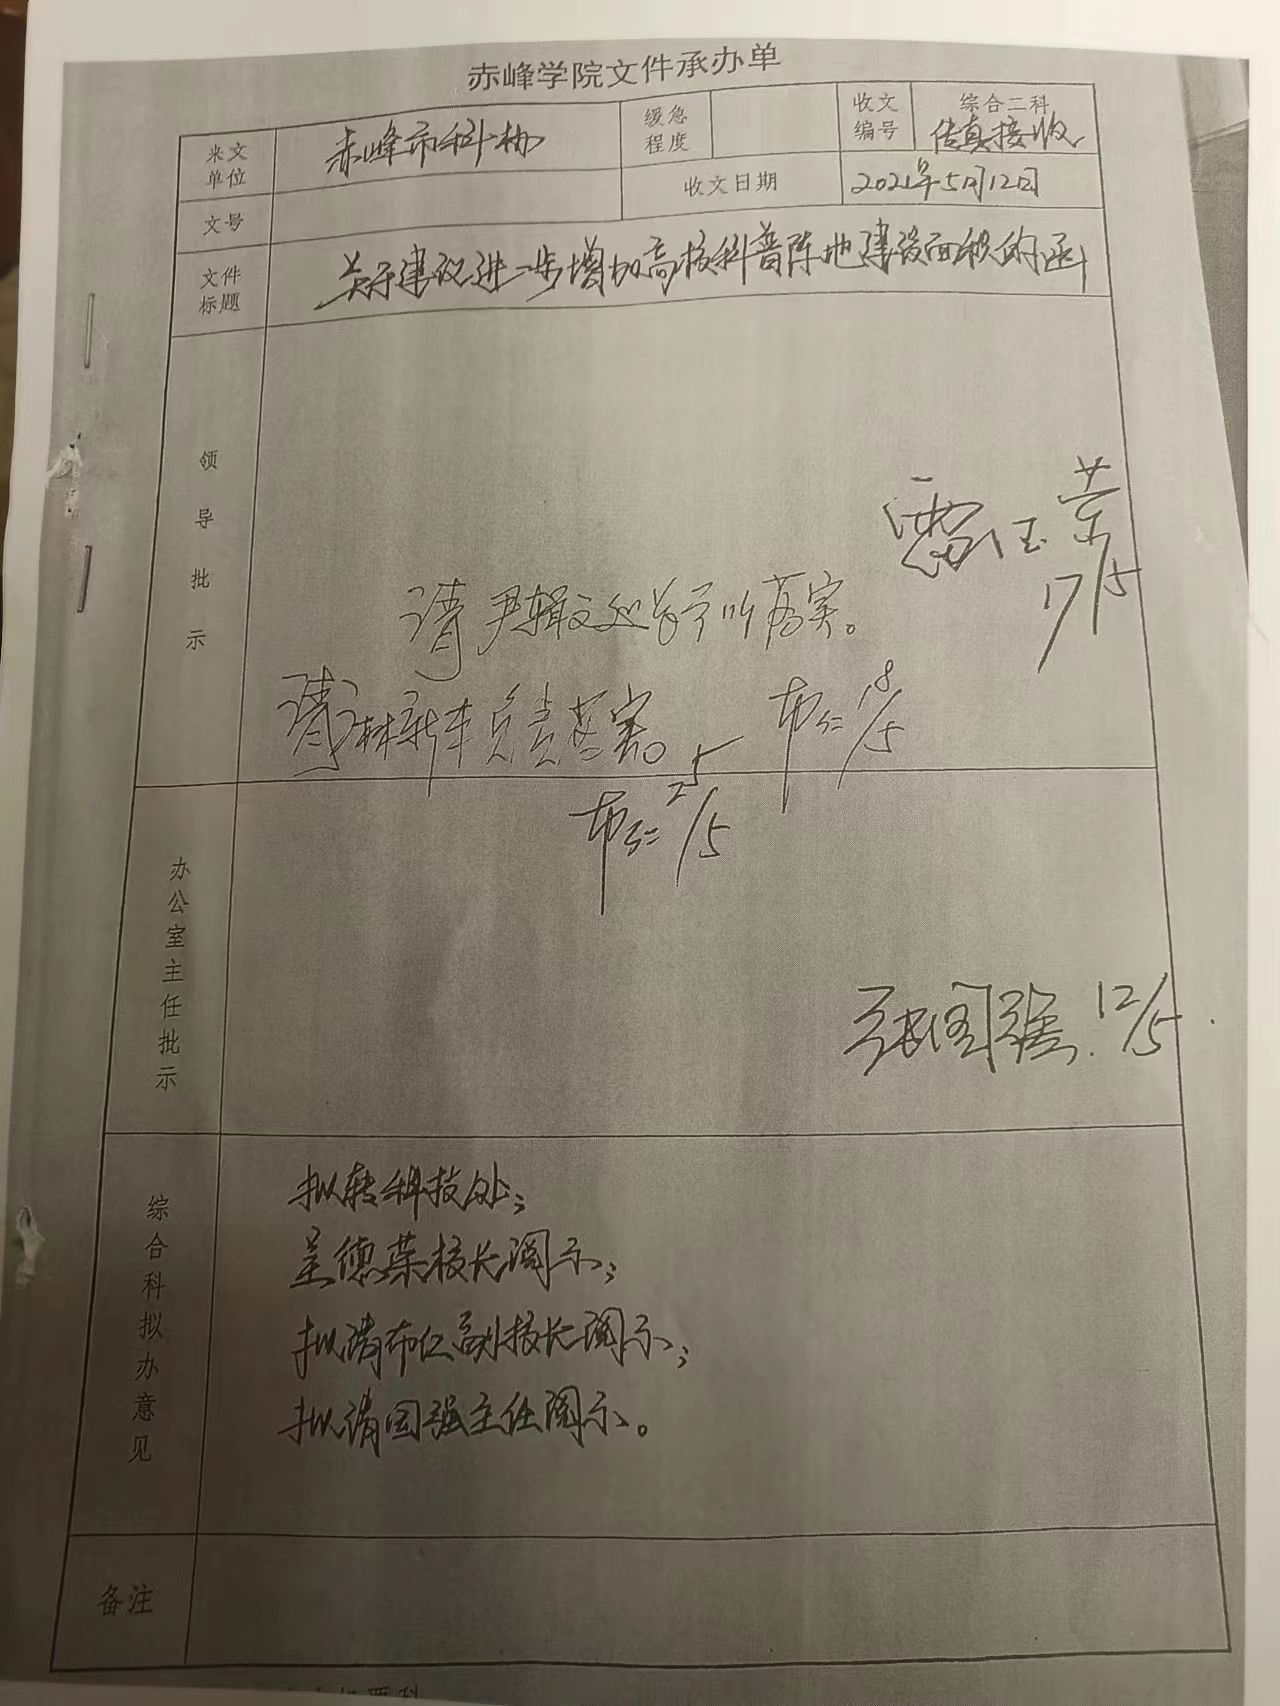 赤峰学院文件承办单
来文单位 赤峰市科协 缓急程度 收文编号 综合二科 传真接收
文号 收文日期 2021年5月12日
文件标题 关于建议进一步增加高校科普阵地建设面积的函
领导批示
17/5
请尹辑文处长予以落实。
布仁 18/5
请林新本负责落实。
布仁 25/5
办公室主任批示
张国强 12/5
综合科拟办意见
拟转科技处；
呈德荣校长阅示；
拟请布仁副校长阅示；
拟请国强主任阅示。
备注